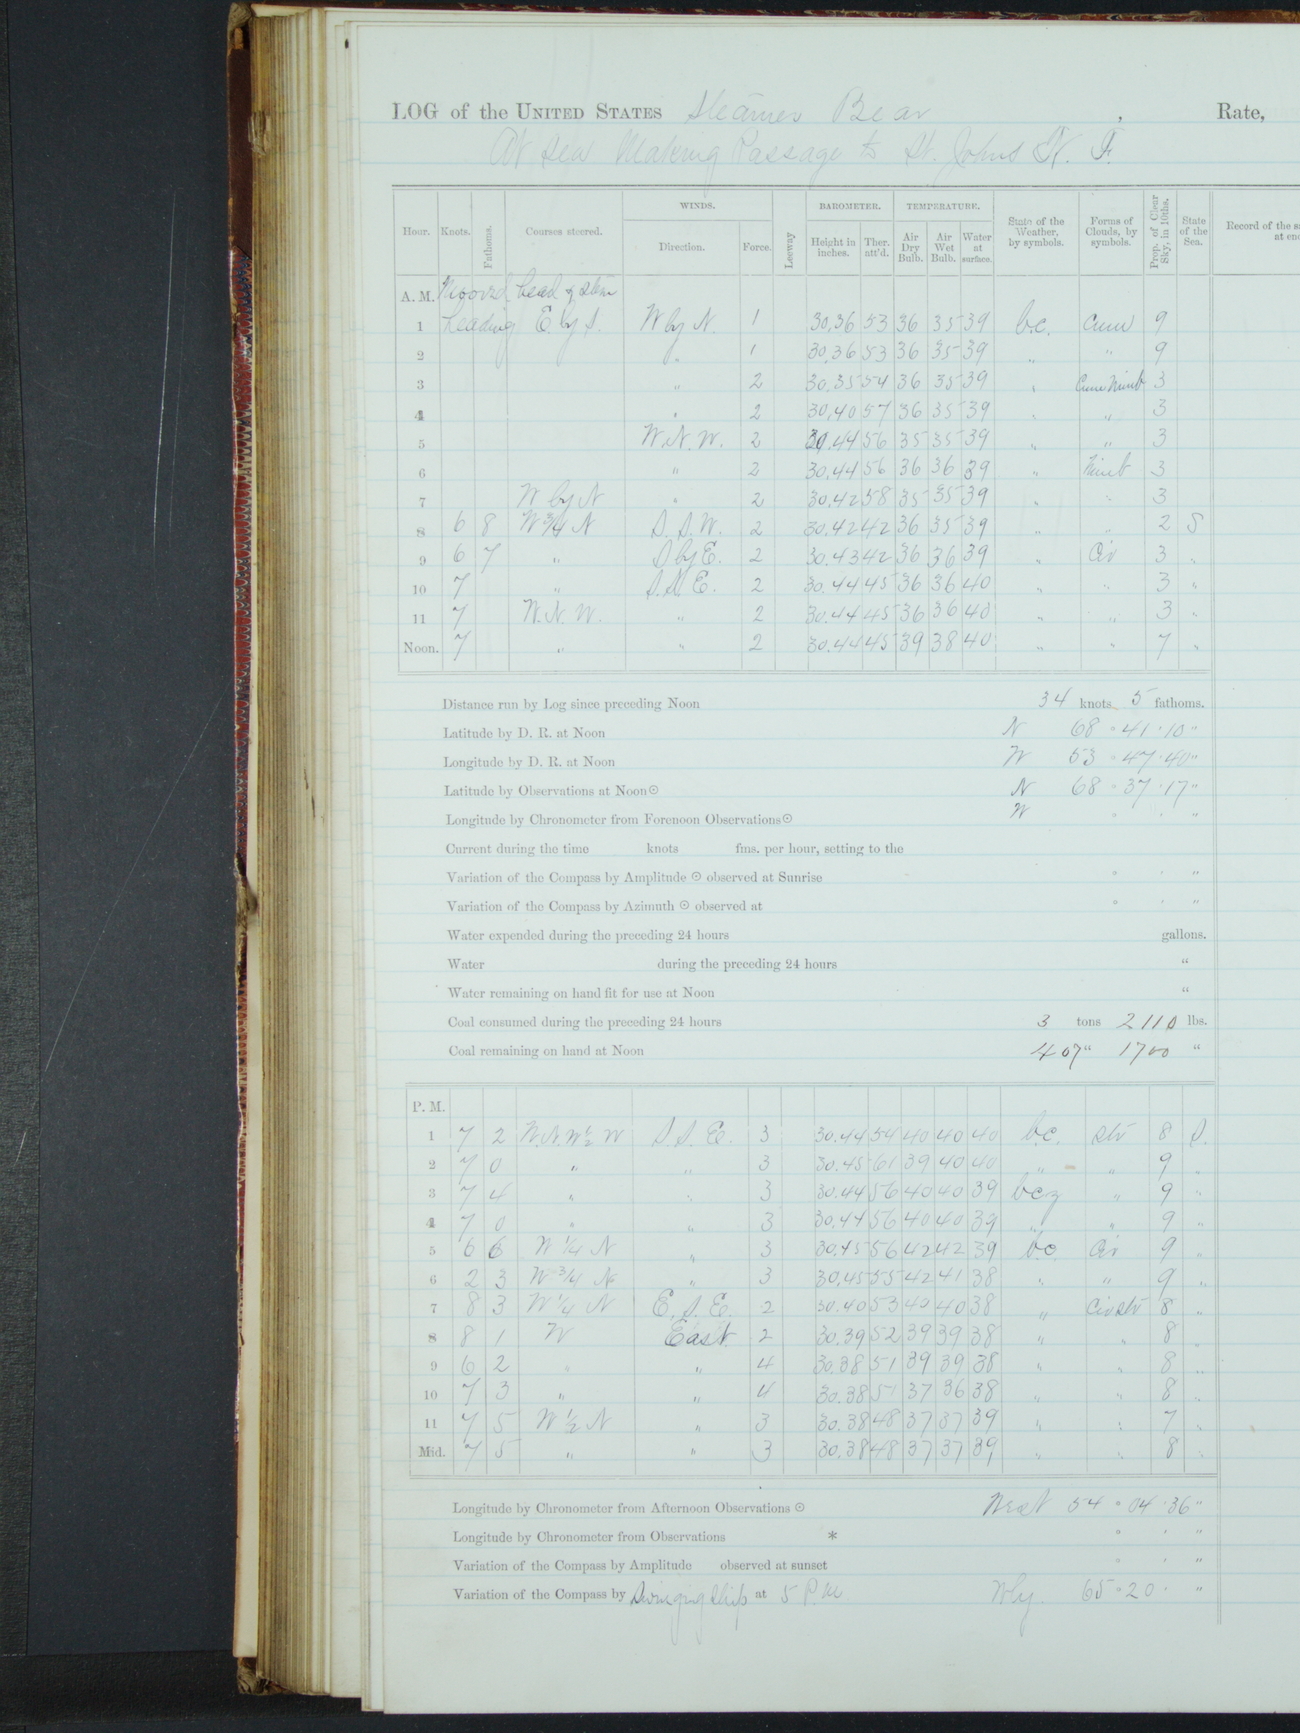 LOG of the UNITED STATES Steamer Bear, Rate,
At Sea Making Passage to St. Johns N. F.
Hour. Knots. Fathoms. Courses steered. WINDS. Direction. Force. Leeway BAROMETER. Height in inches. Ther. att'd. TEMPERATURE. Air Dry Bulb. Air Wet Bulb. Water at surface. State of the Weather, by symbols. Forms of Clouds, by symbols. Prop. of Clear Sky, in 10ths. State of the Sea. Record of the
at en
A. M. Moored head & stern
1 heading E. by S. W by N. 1 30.36 53 36 35 39 b.c. Cum 9
2 " 1 30.36 53 36 35 39 " " 9
3 " 2 30.35 54 36 35 39 " Cum Nimb 3
4 " 2 30.40 57 36 35 39 " " 3
5 W.N.W. 2 30.44 56 35 35 39 " " 3
6 " 2 30.44 56 36 36 39 " Nimb 3
7 W by N " 2 30.42 58 35 35 39 " " 3
8 6 8 W 3/4 N S.S.W. 2 30.42 42 36 35 39 " " 2 S
9 6 7 " S by E. 2 30.43 42 36 36 39 " Cir 3 "
10 7 " S.S.E. 2 30.44 45 36 36 40 " " 3 "
11 7 W.N.W. " 2 30.44 45 36 36 40 " " 3 "
Noon. 7 " " 2 30.44 45 39 38 40 " " 7 "
Distance run by Log since preceding Noon 34 knots 5 fathoms.
Latitude by D. R. at Noon N 68 ° 41 ' 10 "
Longitude by D. R. at Noon W 53 ° 47 ' 40 "
Latitude by Observations at Noon ☉ N 68 ° 37 ' 17 "
Longitude by Chronometer from Forenoon Observations ☉ W ° ' "
Current during the time knots fms. per hour, setting to the
Variation of the Compass by Amplitude ☉ observed at Sunrise ° ' "
Variation of the Compass by Azimuth ☉ observed at ° ' "
Water expended during the preceding 24 hours gallons.
Water during the preceding 24 hours "
Water remaining on hand fit for use at Noon "
Coal consumed during the preceding 24 hours 3 tons 2110 lbs.
Coal remaining on hand at Noon 407 " 1700 "
P. M.
1 7 2 W.N.W 1/2 W S.S.E. 3 30.44 54 40 40 40 b.c. Str 8 S.
2 7 0 " " 3 30.45 61 39 40 40 " " 9 "
3 7 4 " " 3 30.44 56 40 40 39 bcz " 9 "
4 7 0 " " 3 30.44 56 40 40 39 " " 9 "
5 6 6 W 1/4 N " 3 30.45 56 42 42 39 b.c. Cir 9 "
6 2 3 W 3/4 N " 3 30.45 55 42 41 38 " " 9 "
7 8 3 W 1/4 N E.S.E. 2 30.40 53 40 40 38 " Cir Str 8 "
8 8 1 W East 2 30.39 52 39 39 38 " " 8 "
9 6 2 " " 4 30.38 51 39 39 38 " " 8 "
10 7 3 " " 4 30.38 51 37 36 38 " " 8 "
11 7 5 W 1/2 N " 3 30.38 48 37 37 39 " " 7 "
Mid. 7 5 " " 3 30.38 48 37 37 39 " " 8 "
Longitude by Chronometer from Afternoon Observations ☉ West 54 ° 04 ' 36 "
Longitude by Chronometer from Observations * ° ' "
Variation of the Compass by Amplitude observed at sunset ° ' "
Variation of the Compass by Swinging Ship at 5 P.M. Wly. 65 ° 20 ' "